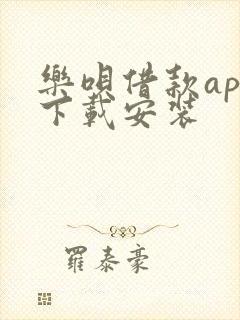 樂唄借款ap
下載安裝
羅泰豪